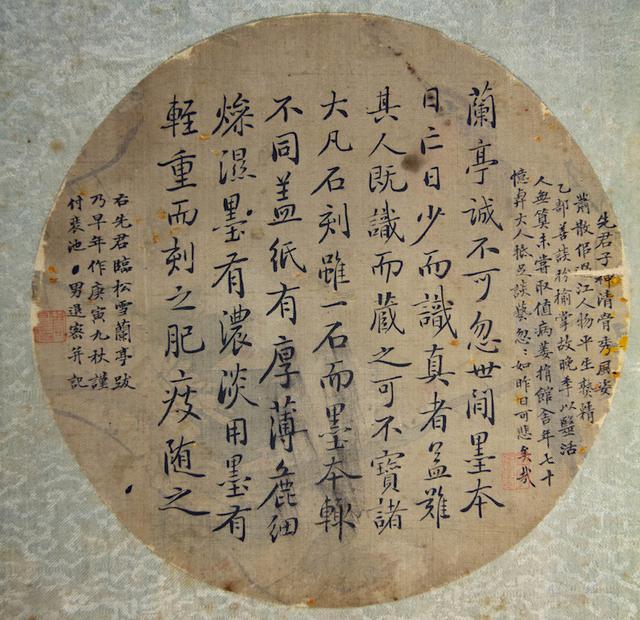 先君子神清骨秀風姿
蕭散江人物平生精
乙部善談枌榆掌故晚年以醫活
人無算未嘗取值病捐館舍年七十
憶大人抵足談藝忽:如昨日可悲矣哉
蘭亭誠不可忽世間墨本
日亡日少而識真者益難
其人既識而藏之可不寶諸
大凡石刻雖一石而墨本輒
不同盖紙有厚薄麁細
燥濕墨有濃淡用墨有
輕重而刻之肥瘦随之
右先君臨松雪蘭亭跋
乃早年作庚寅九秋謹
付裝池男密并記